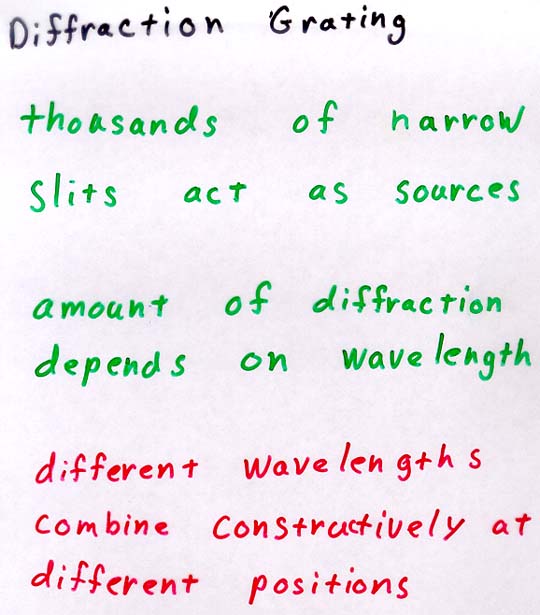 Diffraction Grating
thousands of narrow
slits act as sources
amount of diffraction
depends on wavelength
different wavelengths
combine constructively at
different positions